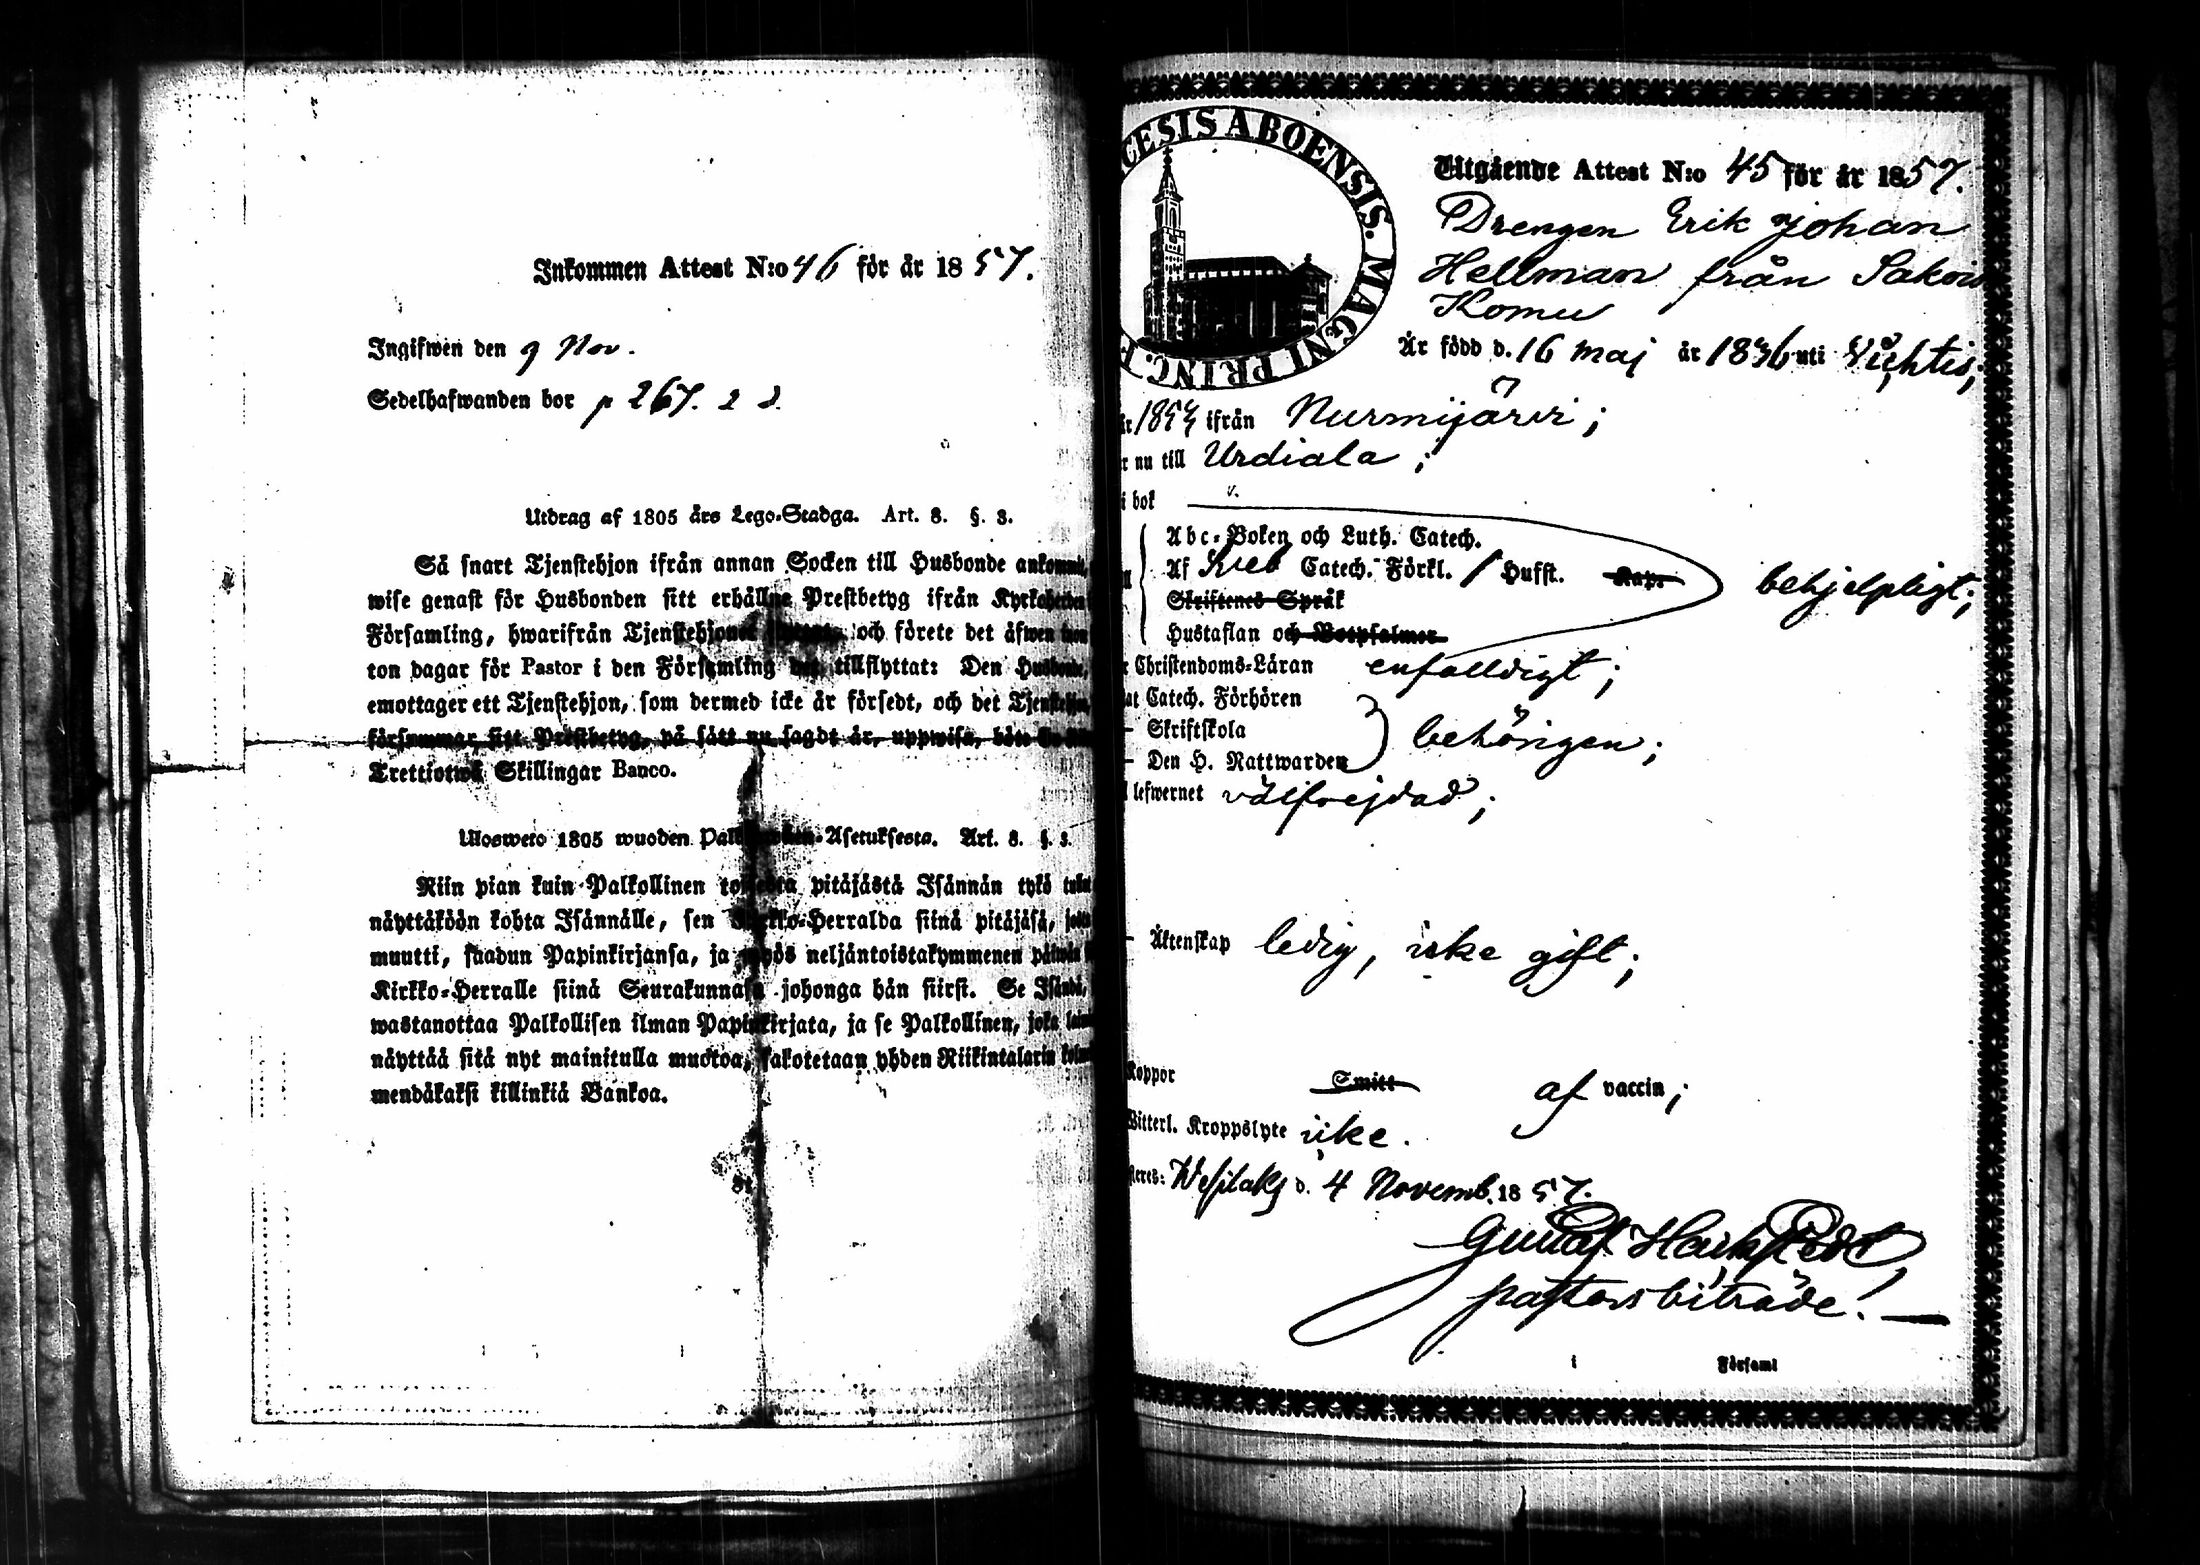 Inkommen Attest N:o 46 för år 1857.
Ingifwen den 9 Nov.
Sedelhafwanden bor p 267.
Utdrag af 1805 års Lego-Stadga. Art. 8. §. 3.
Så snart Tjenstehjon ifrån annan Socken till Husbonde
wise genast för Husbonden sitt erhållne Prestbetyg ifrån
Församling, hwarifrån och förete det äfwen
ton dagar för Pastor i den Församling tillflyttat: Den
emottager ett Tjenstehjon, som dermed icke är försedt, och det
försummar sitt Prestbetyg, på sätt nu sagdt är, uppwisa, böte
Trettiotwå Skillingar Banco.
Ulosweto 1805 wuoden Asetuksesta. Art. 8. §. 3.
Niin pian kuin Palkollinen toisesta pitäjästä Isännän tykö
näyttäköön kohta Isännälle, sen Kirkko-Herralda siinä pitäjäsä,
muutti, saadun Papinkirjansa, ja myös neljäntoistakymmenen
Kirkko-Herralle siinä Seurakunnasa johonga hän siirsi. Se
wastanottaa Palkollisen ilman Papinkirjata, ja se Palkollinen, joka
näyttää sitä nyt mainitulla muotoa, sakotetaan yhden Riikintalarin
mendäkaksi killinkiä Bankoa.
CESIS ABOENSIS. MAGNI PRINC. F
Utgående Attest N:o 45 för år 1857.
Drengen Erik Johan
Hellman från
Komu
Är född d. 16 maj år 1836 uti Wichtis;
ifrån Nurmijärvi;
nu till Urdiala;
i bok
Abc-Boken och Luth. Catech.
Af Sveb Catech. Förkl. / Hufst. behjelpligt;
Skriftenes Språk
Hustaflan och Botpsalmer
Christendoms-Läran enfalldigt;
Catech. Förhören
— Skriftskola behörigen;
— Den H. Nattwarden
lefwernet välfrejdad;
— Äktenskap ledig, icke gift;
Koppor Smitt af vaccin;
Witterl. Kroppslyte icke.
Wesilaks d. 4 Novemb. 1857.
Gustaf
pastorsbiträde! —
i Församl